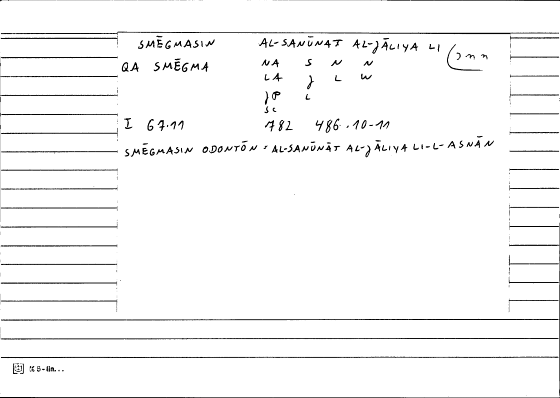 SMĒGMASIN AL-SANŪNAT AL-ǦĀLIYA LI
QA SMĒGMA NA S N N
LA ǧ L W
ǧP L
SC
I 67.11 782 486.10-11
SMĒGMASIN ODONTŌN = AL-SANŪNĀT AL-ǦĀLIYA LI-L-ASNĀN